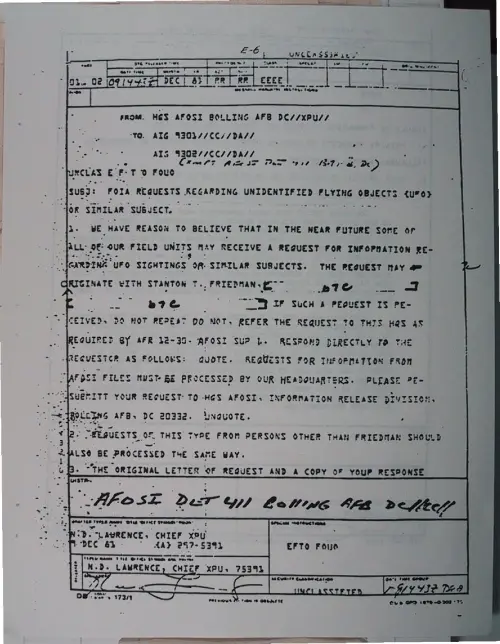 E-6
UNCLASSIFIED
01 02 091443Z DEC 83 PR RR EEEE
FROM: HQS AFOSI BOLLING AFB DC//XPU//
TO: AIG 9301//CC//DA//
AIG 9302//CC//DA//
UNCLAS E F T O FOUO
SUBJ: FOIA REQUESTS REGARDING UNIDENTIFIED FLYING OBJECTS (UFO)
OR SIMILAR SUBJECT.
1. WE HAVE REASON TO BELIEVE THAT IN THE NEAR FUTURE SOME OF
ALL OF OUR FIELD UNITS MAY RECEIVE A REQUEST FOR INFORMATION RE-
GARDING UFO SIGHTINGS OR SIMILAR SUBJECTS. THE REQUEST MAY
ORIGINATE WITH STANTON T. FRIEDMAN, b7C
b7C IF SUCH A REQUEST IS RE-
CEIVED, DO NOT REPEAT DO NOT, REFER THE REQUEST TO THIS HQS AS
REQUIRED BY AFR 12-30, AFOSI SUP 1. RESPOND DIRECTLY TO THE
REQUESTOR AS FOLLOWS: QUOTE. REQUESTS FOR INFORMATION FROM
AFOSI FILES MUST BE PROCESSED BY OUR HEADQUARTERS. PLEASE RE-
SUBMITT YOUR REQUEST TO HQS AFOSI, INFORMATION RELEASE DIVISION,
BOLLING AFB, DC 20332. UNQUOTE.
2. REQUESTS OF THIS TYPE FROM PERSONS OTHER THAN FRIEDMAN SHOULD
ALSO BE PROCESSED THE SAME WAY.
3. THE ORIGINAL LETTER OF REQUEST AND A COPY OF YOUR RESPONSE
DISTR:
AFOSI Det 411 Bolling AFB DC//CC//
N.D. LAWRENCE, CHIEF XPU
DEC 83 (A) 297-5391
EFTO FOUO
N.D. LAWRENCE, CHIEF XPU, 75391
SECURITY CLASSIFICATION
DATE TIME GROUP
UNCLASSIFIED
091443Z
DD 173/1
PREVIOUS EDITION IS OBSOLETE